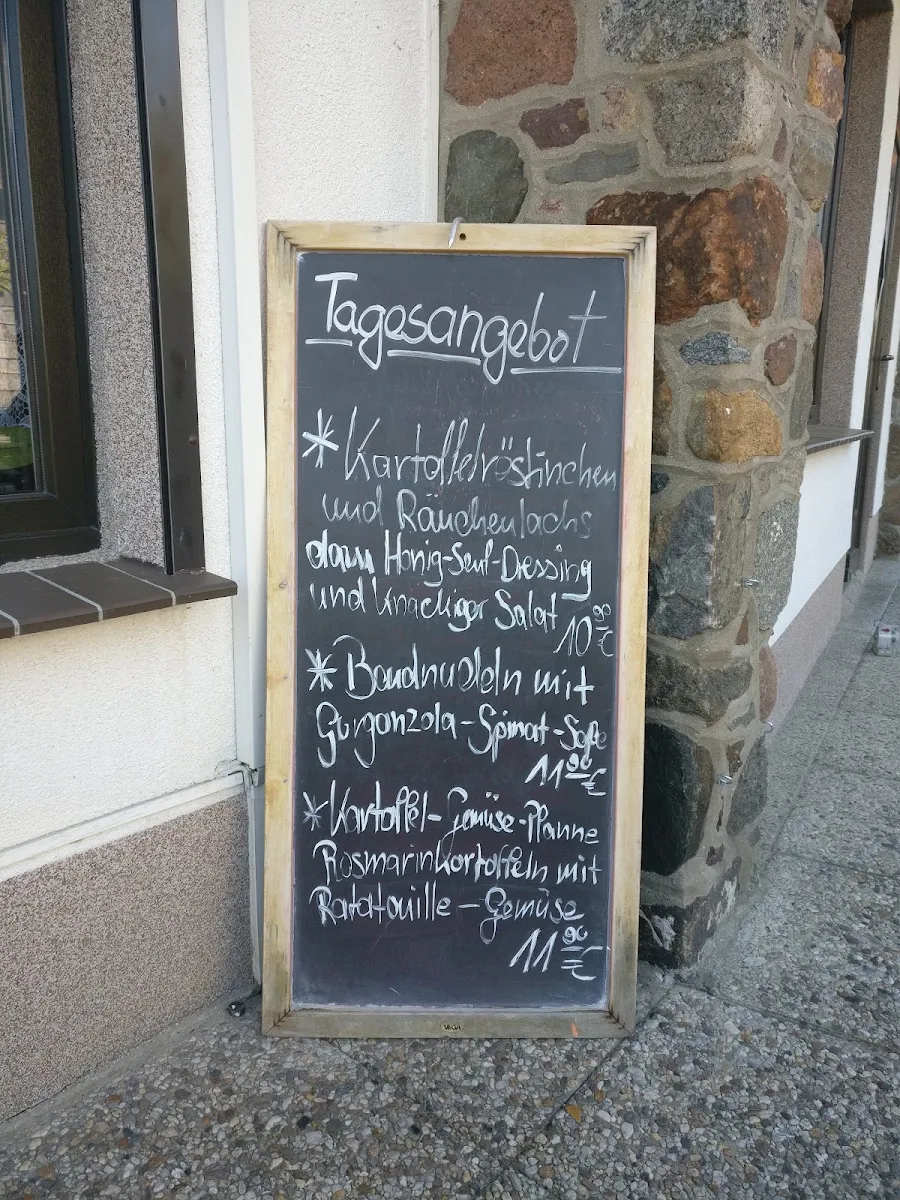 Tagesangebot
* Kartoffelröstinchen
und Räucherlachs
dazu Honig-Senf-Dressing
und knackiger Salat 10 90 €
* Bandnudeln mit
Gorganzola-Spinat-Soße
11 90 €
* Kartoffel-Gemüse-Pfanne
Rosmarinkartoffeln mit
Ratatouille-Gemüse
11 90 €
VEGA